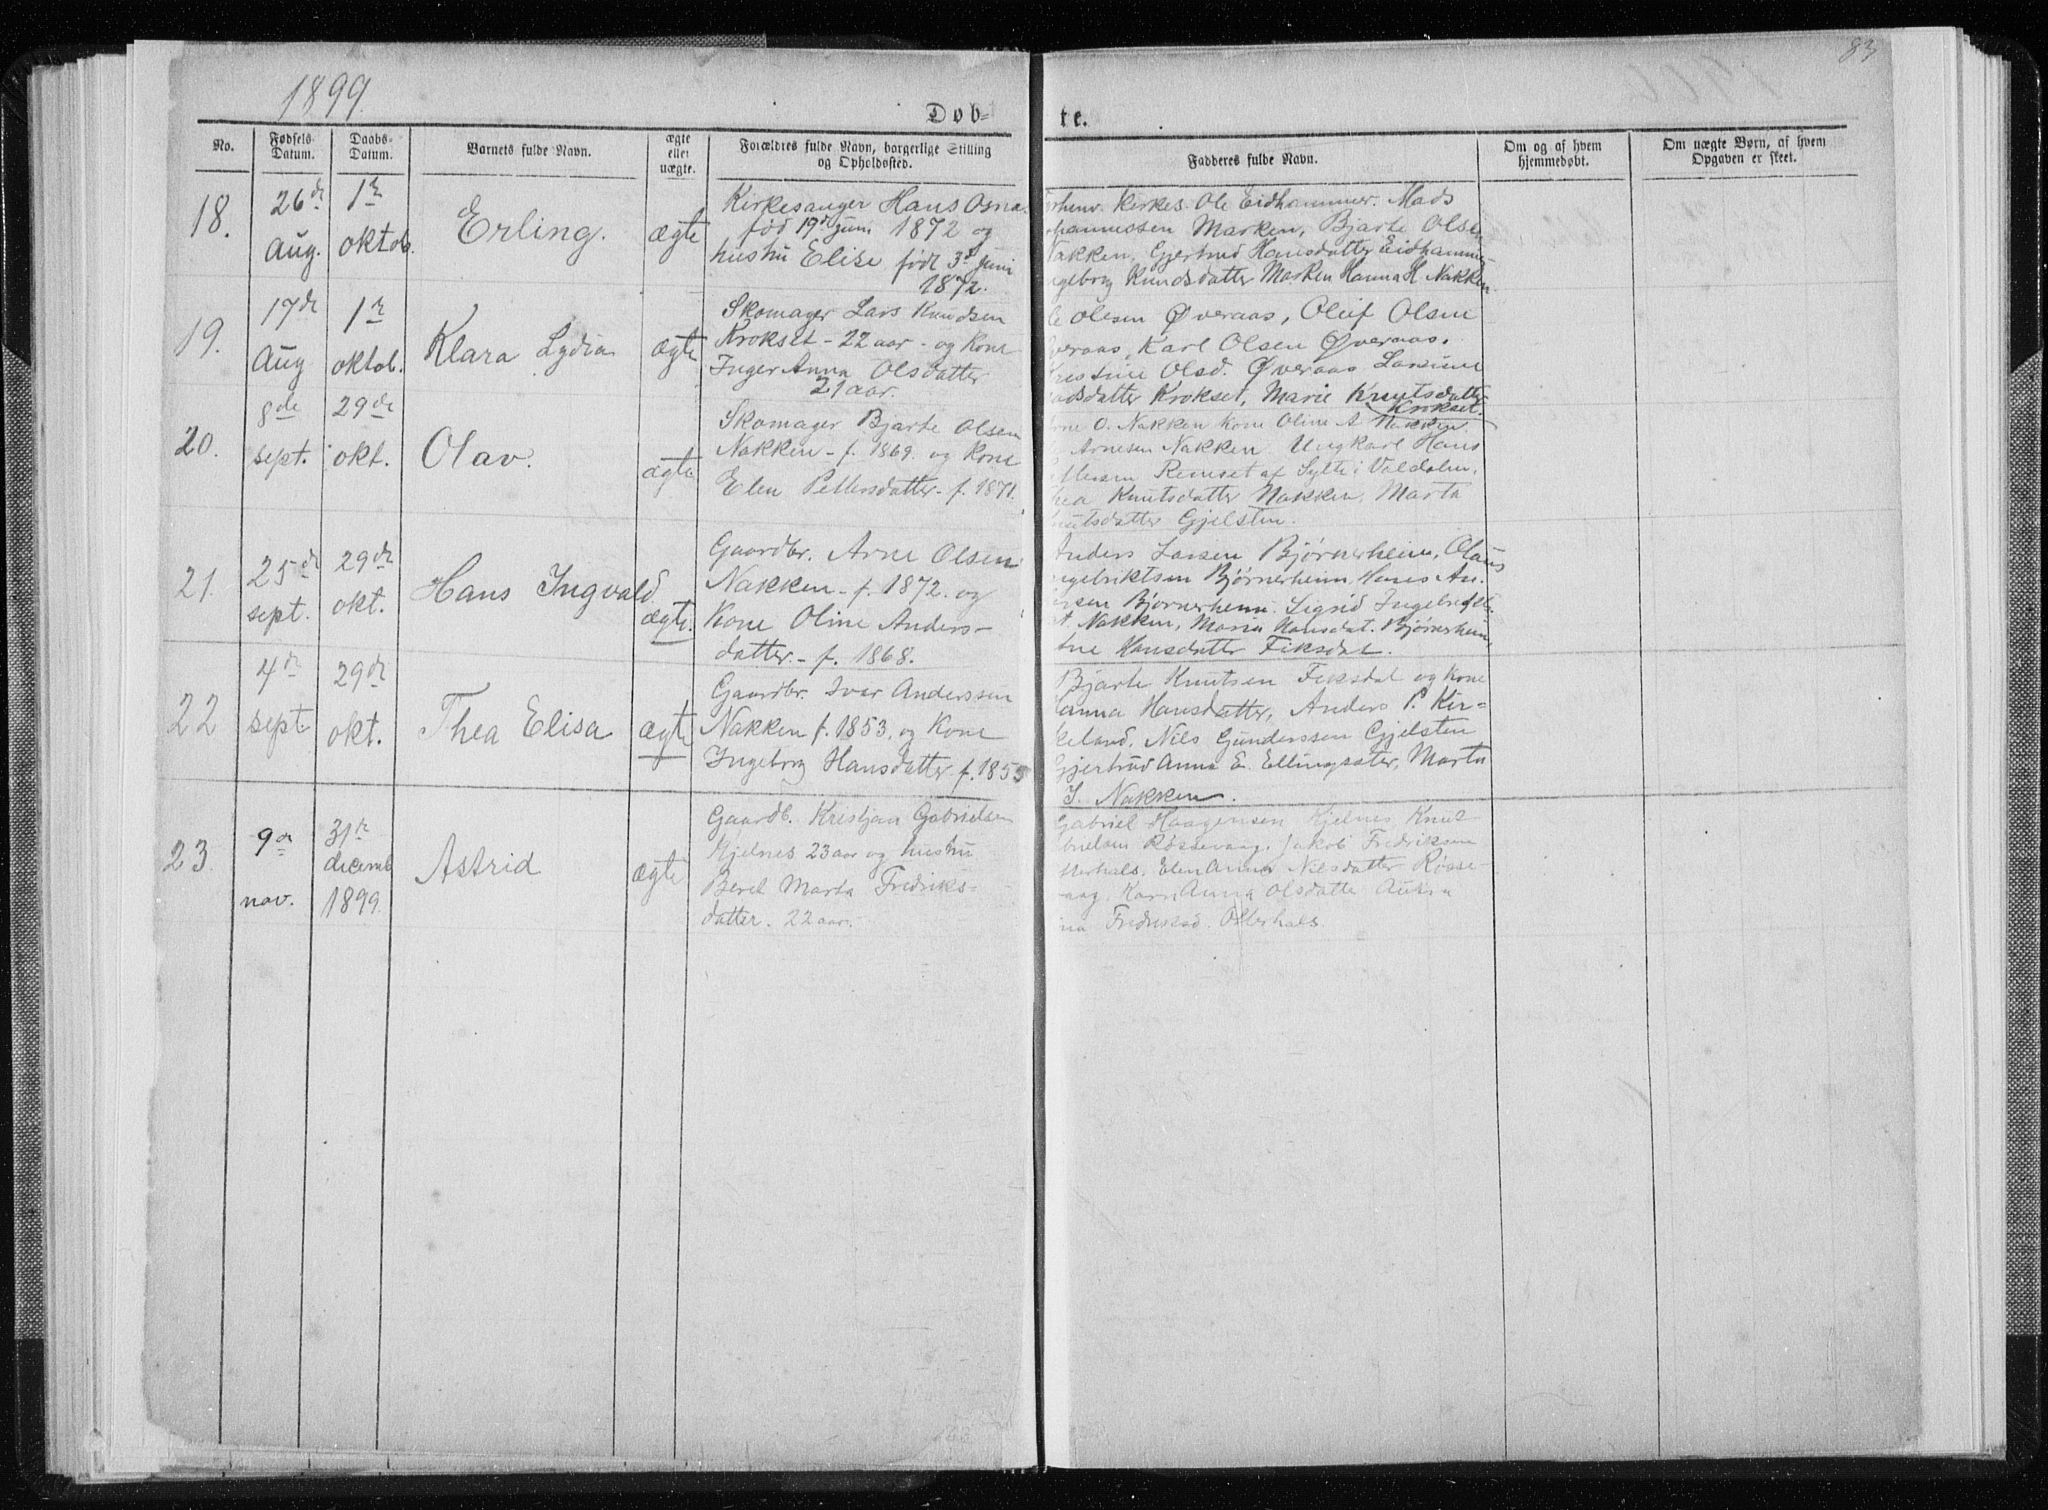 1899.
83
Døb-
te.
No.
Fødsels-
Datum.
Daabs-
Datum.
Barnets fulde Navn.
ægte
eller
uægte.
Forældres fulde Navn, borgerlige Stilling
og Opholdssted.
Fadderes fulde Navn.
Om og af hvem
hjemmedøbt.
Om uægte Børn, af hvem
Opgaven er skeet.
18.
26de
aug.
1ste
oktob.
Erling.
ægte
Kirkesanger Hans Osna
fød 19de juni 1872 og
hustru Elise født 3de juni
1872.
Kirkes. Ole Eidhammer. Mads
Marken, Bjarte Olsen
Nakken, Gjertrud Hansdatter Eidhammer
Ingeborg Knudsdatter Marken Hanna H. Nakken.
19.
17de
Aug
1ste
oktob.
Klara Lydia
ægte
Skomager Lars Knudsen
Krokset - 22 aar - og Kone
Inger Anna Olsdatter
21 aar.
Olesen Øveraas, Oluf Olsen
Øveraas, Karl Olsen Øveraas.
Olsd. Øveraas
Krokset, Marie Knutsdatter
Krokset.
20.
8de
sept.
29de
okt.
Olav.
ægte
Skomager Bjarte Olsen
Nakken - f. 1869. og Kone
Elen Pettersdatter - f. 1871.
Arne O. Nakken Kone Oline A. Nakken.
Arnesen Nakken Ungkarl Hans
af Sylte i Valdalen.
Thea Knutsdatter Nakken, Marta
Knutsdatter Gjelsten.
21.
25de
sept.
29de
okt.
Hans Ingvald
ægte.
Gaardbr. Arne Olsen
Nakken - f. 1872. og
Kone Oline Anders-
datter. - f. 1868.
Anders Larsen Bjørnerheim, Olaus
Ingebriktsen Bjørnerheim, Hans An-
dersen Bjørnerheim. Sigrid
Nakken, Maria Hansdat. Bjørnerheim,
Hansdatter Fiksdal.
22
4de
sept
29de
okt.
Thea Elisa
ægte
Gaardbr. Ivar Anderssen
Nakken f. 1853. og Kone
Ingeborg Hansdatter f. 1855
Bjarte Knutsen Fiksdal og Kone
Hanna Hansdatter, Anders P. Kir-
keland. Nils Gunderssen Gjelsten
Gjertrud Anna E. Ellingsæter, Marta
I. Nakken.
23.
9de
nov.
31te
decemb
1899.
Astrid
ægte
Gaardb. Kristjan Gabrielsen
Hjelnes 23 aar og hustru
Berel Marta Fredriks-
datter. 22 aar.
Gabriel Haagensen Hjelnes Knut
Røssevaag. Jakob Fredriksen
Otterhals. Elen Anna Nilsdatter Røsse-
vaag. Karn Anna Olsdatte Aukra
Otterhals.